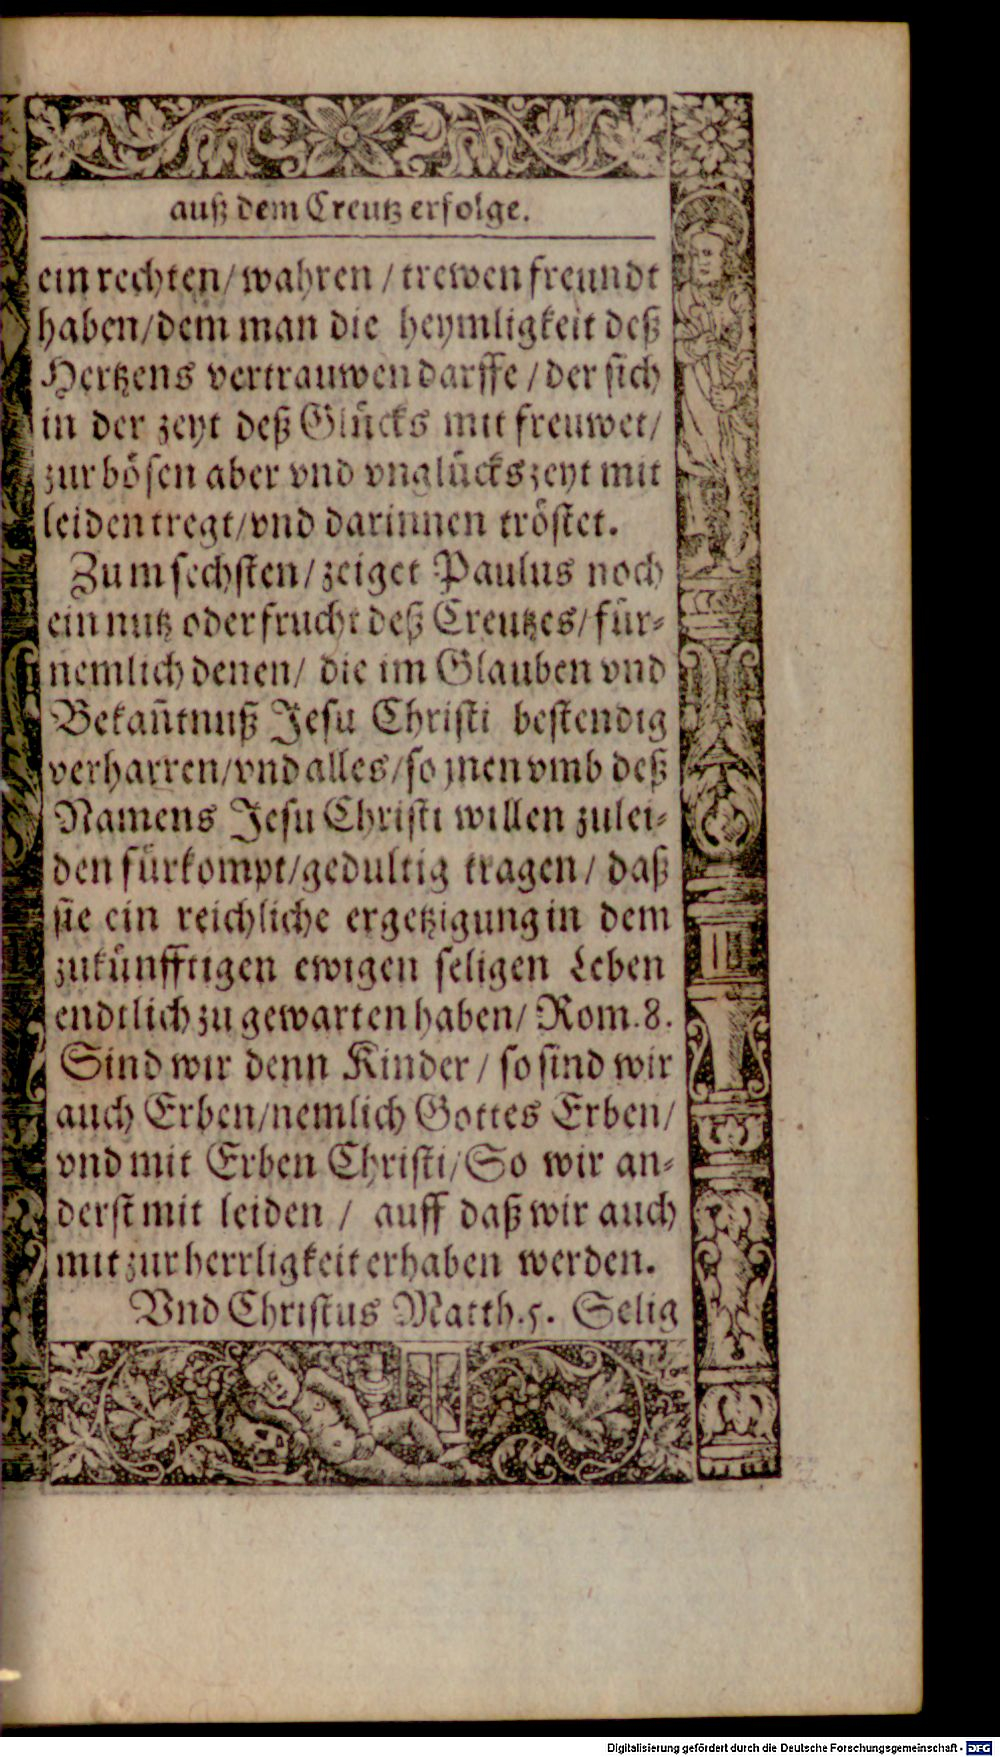 auß dem Creutz erfolge.
ein rechten/ wahren / trewen freundt
haben/dem man die heymligkeit deß
Hertzens vertrauwen darffe / der sich
in der zeyt deß Glücks mit freuwet/
zur bösen aber vnd vnglücks zeyt mit
leiden tregt/vnd darinnen tröstet.
Zum sechsten/ zeiget Paulus noch
ein nutz oder frucht deß Creutzes/ für-
nemlich denen/ die im Glauben vnd
Bekañtnuß Jesu Christi bestendig
verharren/vnd alles/so jnen vmb deß
Namens Jesu Christi willen zulei-
den fürkompt/gedultig tragen/ daß
sie ein reichliche ergetzigung in dem
zukünfftigen ewigen seligen Leben
endtlich zu gewarten haben/ Rom. 8.
Sind wir denn Kinder / so sind wir
auch Erben/nemlich Gottes Erben/
vnd mit Erben Christi/So wir an-
derst mit leiden / auff daß wir auch
mit zur herrligkeit erhaben werden.
Vnd Christus Matth. 5. Selig
Digitalisierung gefördert durch die Deutsche Forschungsgemeinschaft - DFG